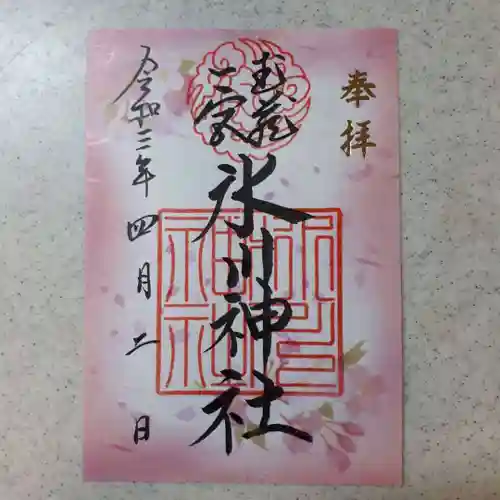 奉拝
武蔵
一宮
氷川神社
令和三年四月二日